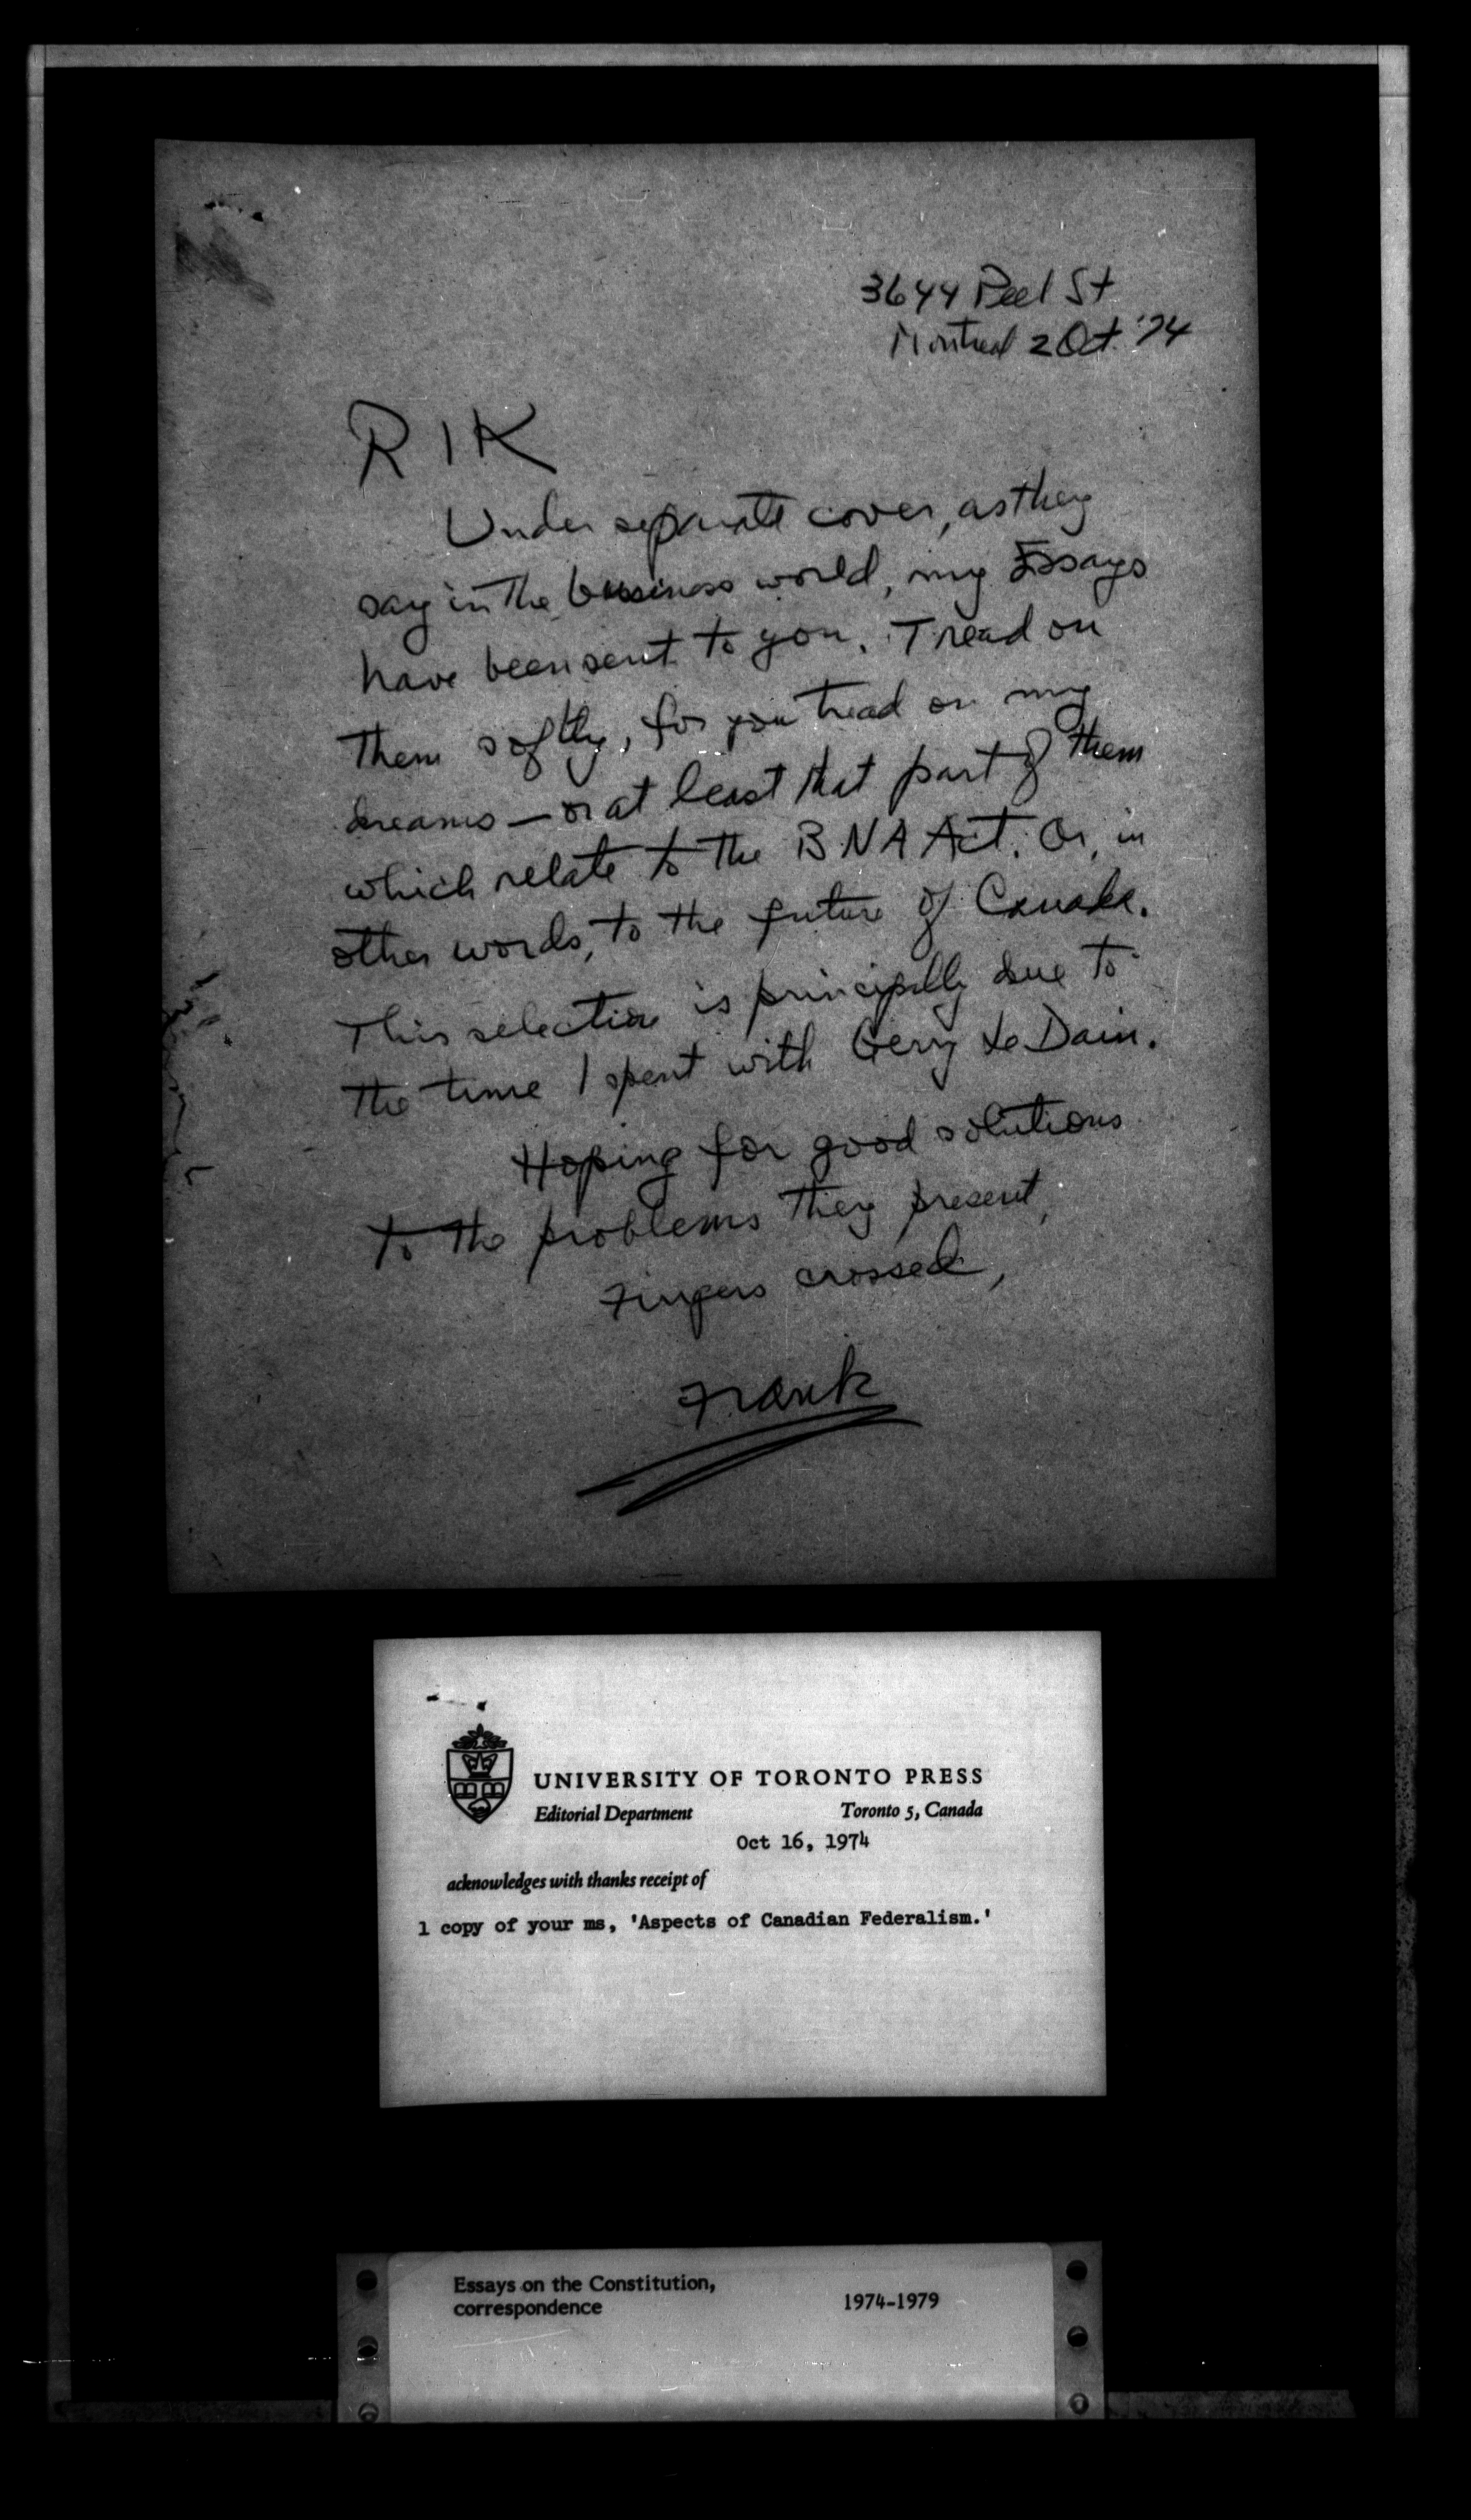 3644 Peel St
Montreal 2 Oct. '74
RIK
Under separate cover, as they
say in the business world, my Essays
have been sent to you. Tread on
them softly, for you tread on my
dreams — or at least that part of them
which relate to the BNA Act. Or, in
other words, to the future of Canada.
This selection is principally due to
the time I spent with Gerry Le Dain.
Hoping for good solutions
to the problems they present,
Fingers crossed,
Frank
UNIVERSITY OF TORONTO PRESS
Editorial Department Toronto 5, Canada
Oct 16, 1974
acknowledges with thanks receipt of
1 copy of your ms, 'Aspects of Canadian Federalism.'
Essays on the Constitution,
correspondence 1974-1979